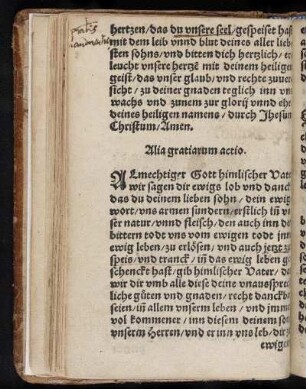 hertzen/ das du vnsere seel/ gespeiset hast
mit dem leib vnnd blut deines aller lieb
sten sohns/ vnd bitten dich hertzlich/ er
leucht vnsere hertzē mit deinem heiligen
geist/ das vnser glaub/ vnd rechte zuuer
sicht/ zu deiner gnaden teglich inn vns
wachs vnd zunem zur glorij vnnd ehr
deines heiligen namens/ durch Jhesum
Christum/ Amen.
Alia gratiarum actio.
ALmechtiger Gott himlischer Vater
wir sagen dir ewigs lob vnd danck
das du deinem lieben sohn/ dein ewig
wort/ vns armen sundern/ erstlich iñ vn
ser natur/ vnnd fleisch/ den auch inn den
bittern todt vns vom ewigen todt inns
ewig leben/ zu erlösen/ vnd auch jetzt zur
speis/ vnd tranck/ iñ das ewig leben ge
schenckt hast/ gib himlischer Vater/ das
wir dir vmb alle dise deine vnaussprech
liche güten vnd gnaden/ recht danckbar
seien/ iñ allem vnserm leben/ vnd jmmer
vol kommener/ inn disem deinem sohn
vnserm Herren/ vnd er inn vns leb/ dir zu
ewigen